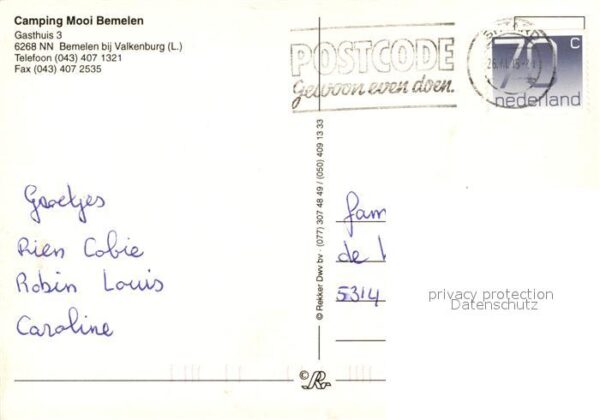 Camping Mooi Bemelen
Gasthuis 3
6268 NN Bemelen bij Valkenburg (L.)
Telefoon (043) 407 1321
Fax (043) 407 2535
POSTCODE
Gewoon even doen.
70 c
nederland
© Rekker Dwv bv · (077) 307 48 49 / (050) 409 13 33
Groetjes
Rien Cobie
Robin Louis
Caroline
fam
de
5314
privacy protection
Datenschutz
©R